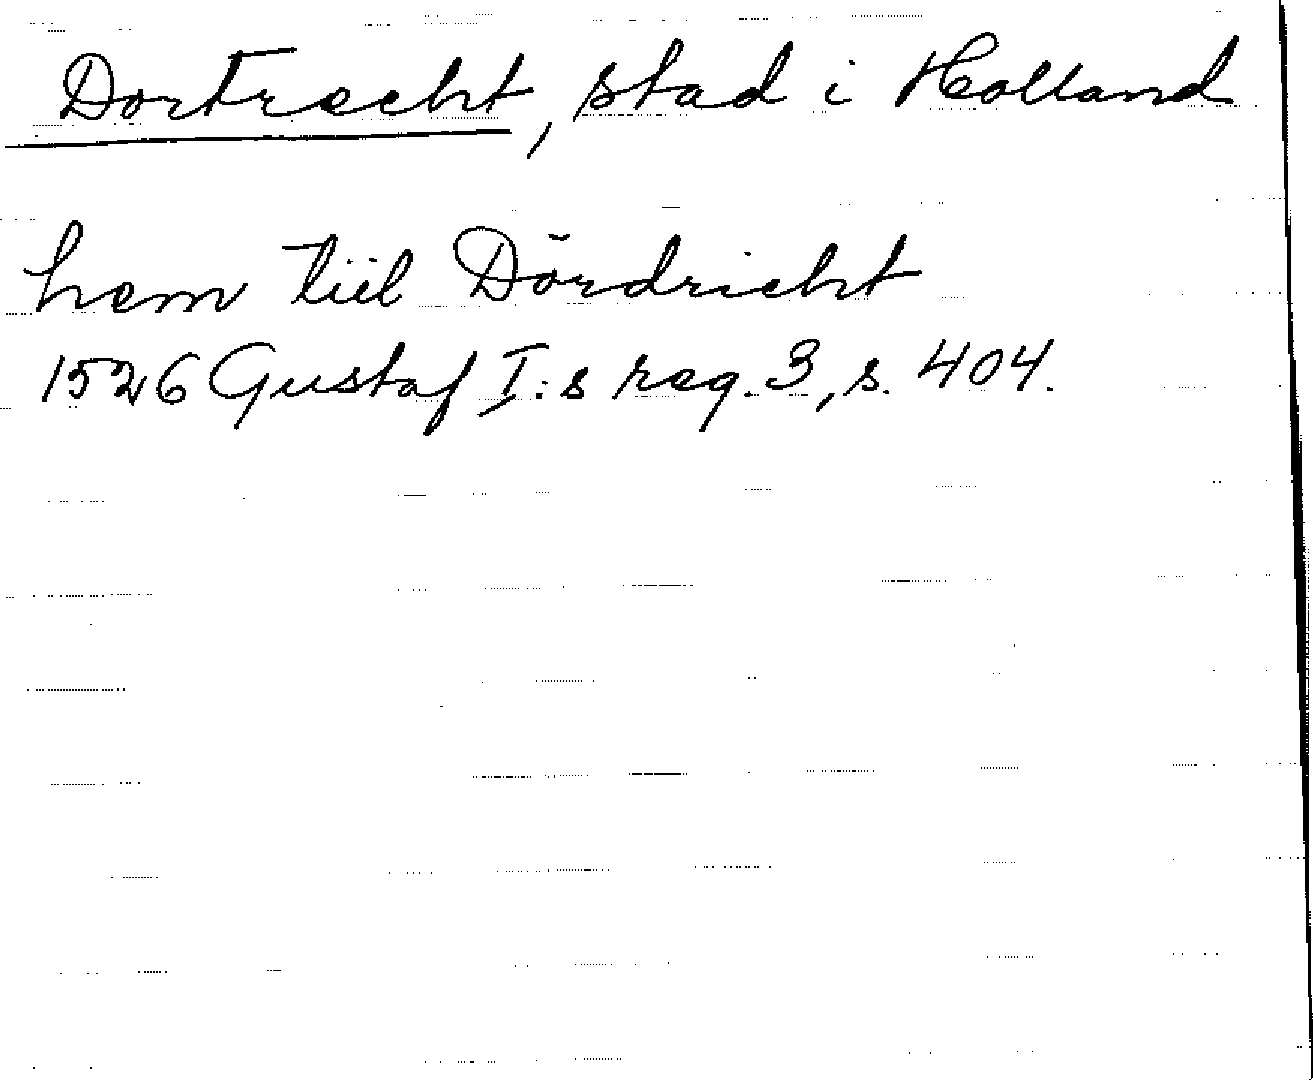 Dortrecht, stad i Holland
hem tiil Dördricht
1526 Gustaf I:s reg. 3, s. 404.